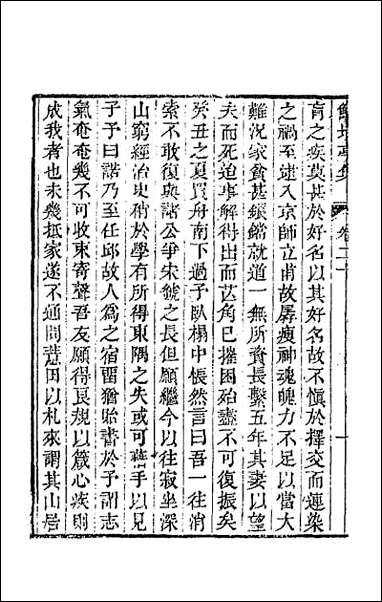 鮚埼亭集 卷二十
肓之疾莫甚於好名以其好名故不愼於擇交而連染
之禍至逮入京師立甫故孱瘦神魂魄力不足以當大
難況家貧甚鋃鐺就道一無所賫長繫五年其妻以望
夫而死迨事解得出而芒角已摧困殆盡不可復振矣
癸丑之夏買舟南下過予臥榻中悵然言曰吾一往消
索不敢復與諸公爭宋虢之長但願繼今以往寂坐深
山窮經治史稍於學有所得東隅之失或可藉手以見
子予曰諾乃至任邱故人爲之宿畱猶貽書於予謂志
氣奄奄幾不可收束寄聲吾友願得艮規以箴心疾則
成我者也未幾抵家遂不通問葊田以札來謂其山居